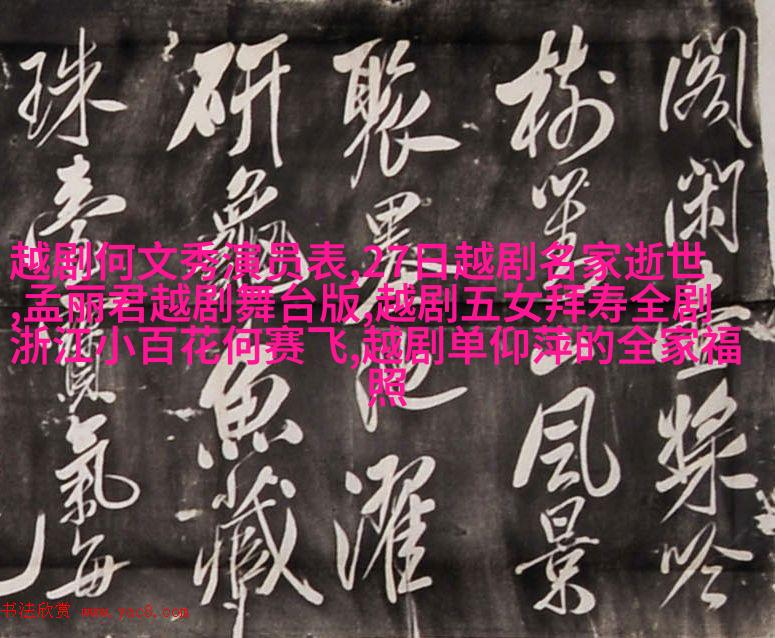 越剧何文秀演员表,27日越剧名家逝世
,孟丽君越剧舞台版,越剧五女拜寿全剧
浙江小百花何赛飞,越剧单仰萍的全家福
照
閣閑吟
樹風景
聚墨池濯
研魚藏
珠氣每
书法欣赏 www.yac8.com